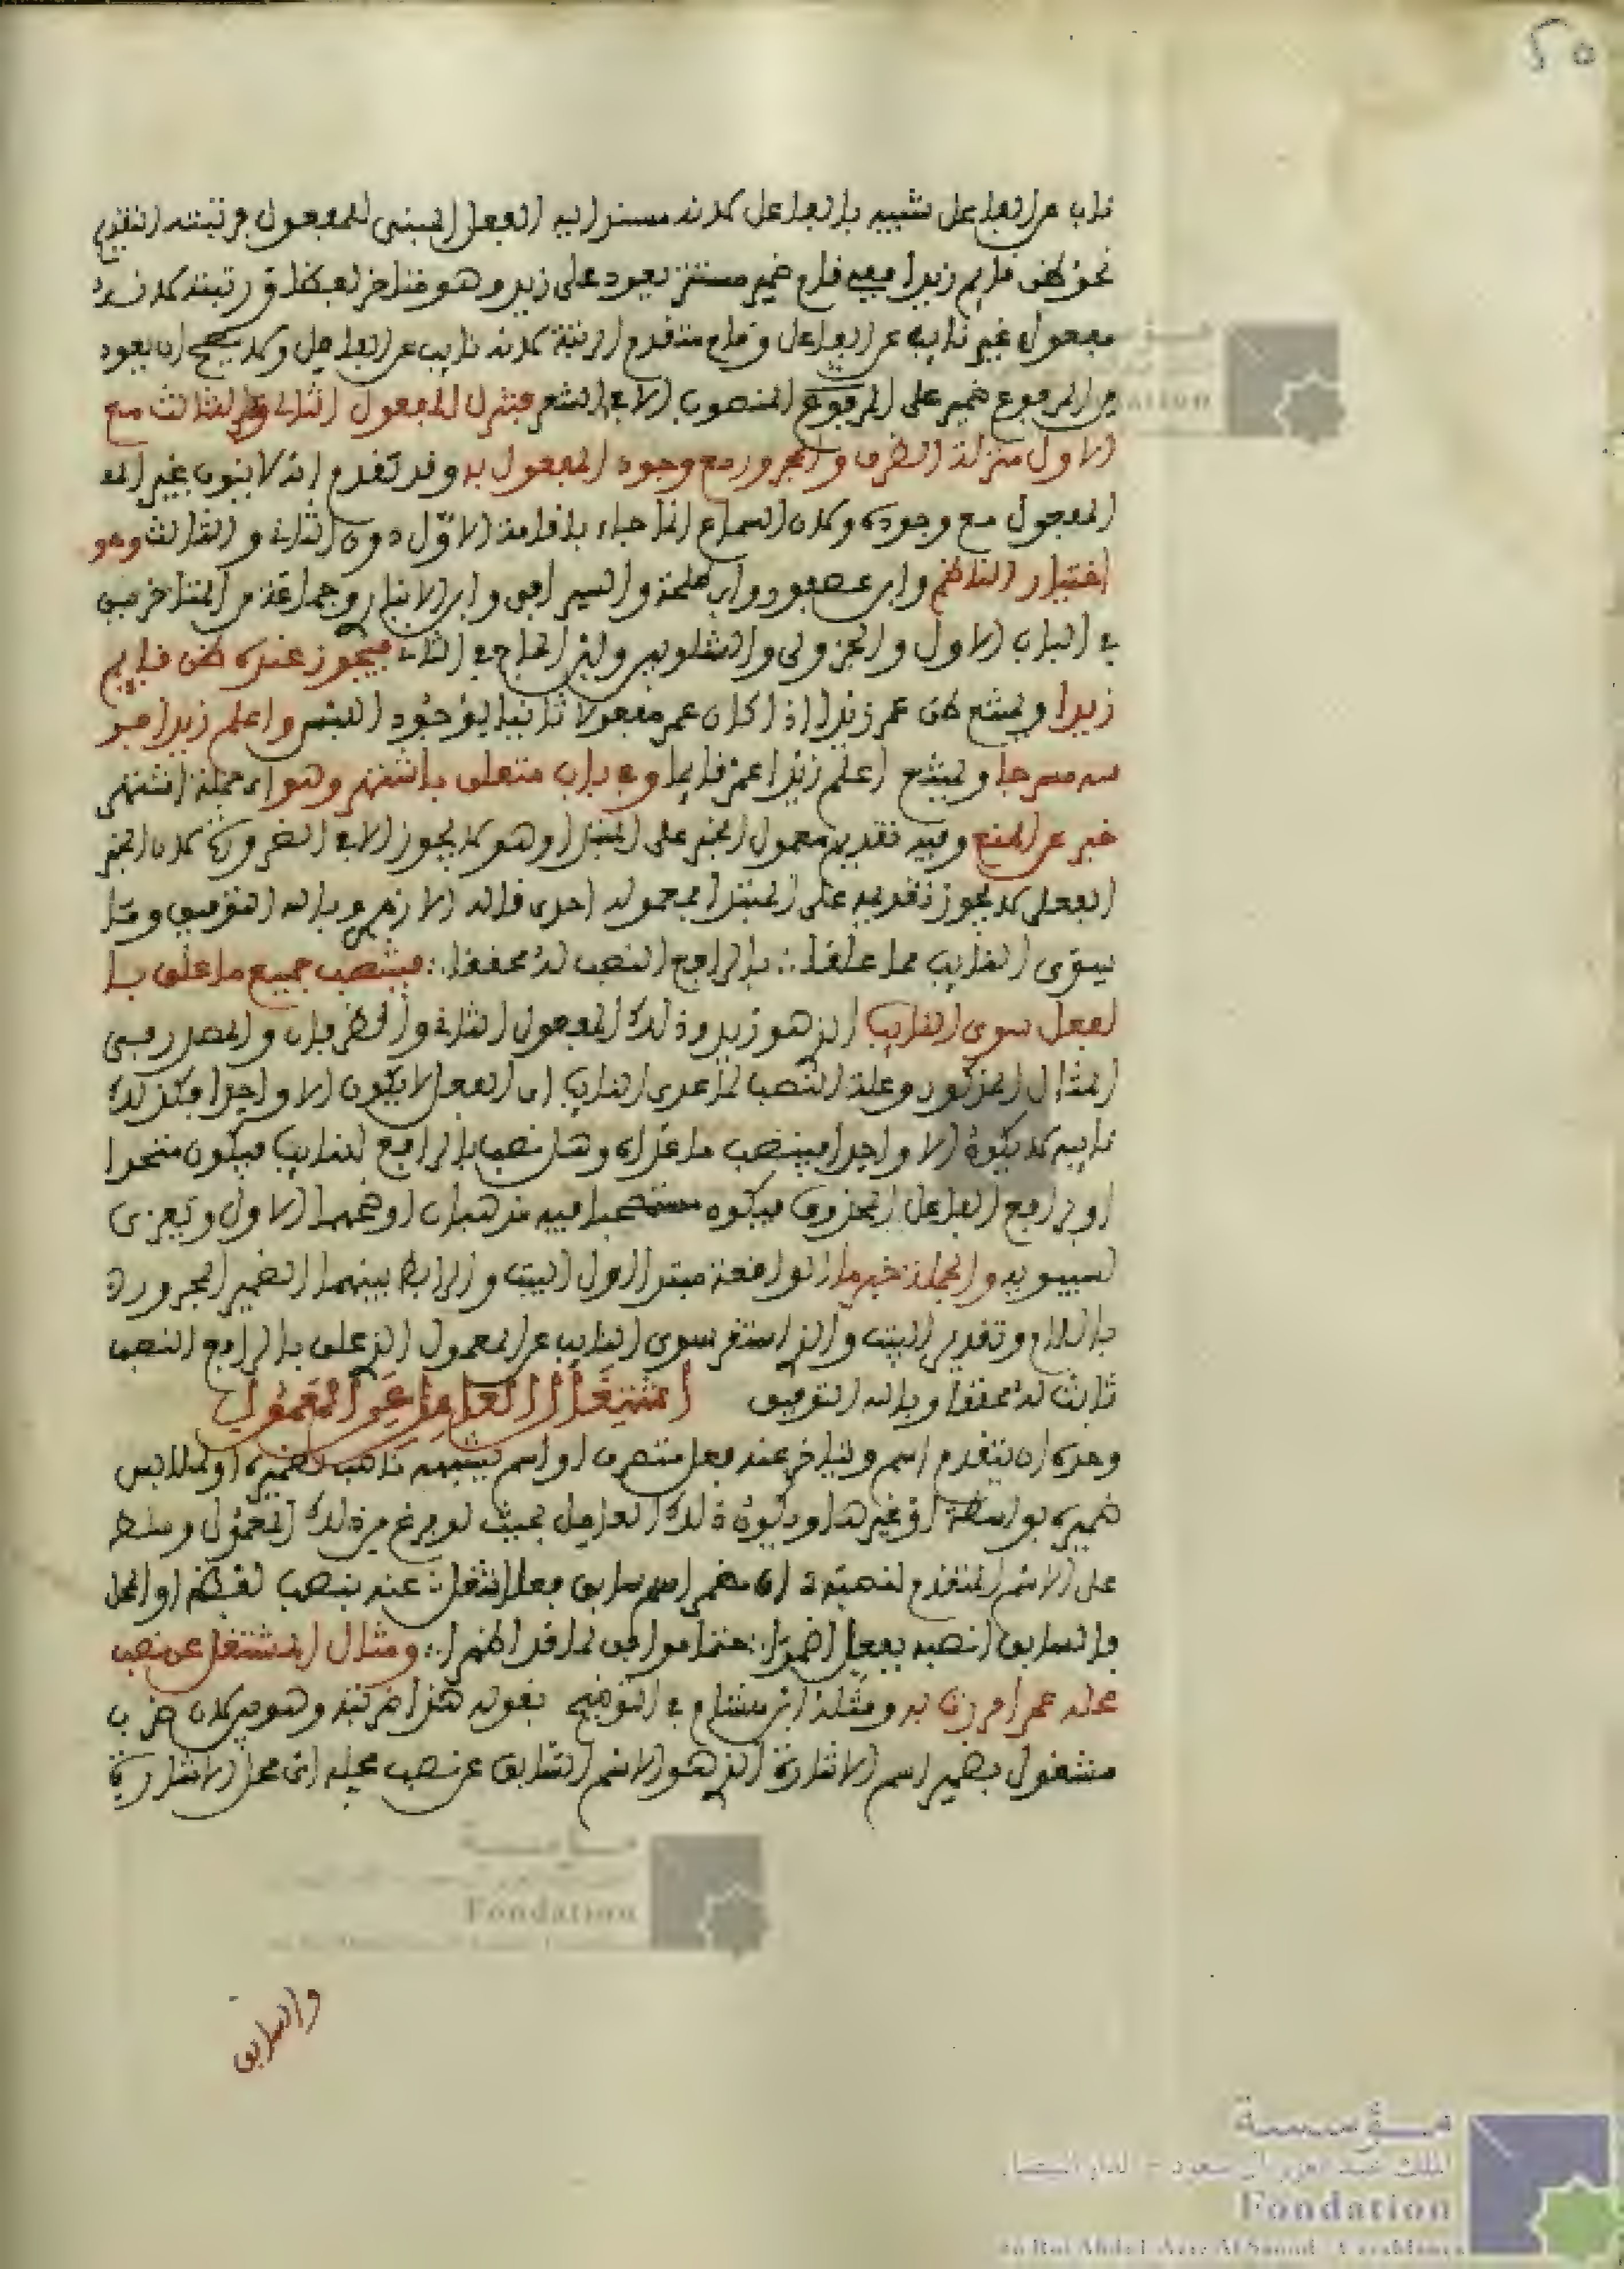 ٢٥
ناب عن الفاعل شبيه بالفاعل لانه مسند اليه الفعل المبني للمفعول فرتبته التقديم
نحو ظن قايم زيدا ففيه قايم ضمير مستتر يعود على زيد وهو متاخر لفظا ورتبة لانه
مفعول غير نايب عن الفاعل وقايم متقدم الرتبة لانه نايب عن الفاعل ولا يصح ان يعود
من المرفوع ضمير على المنصوب الا في الشعر فتنزل المفعول الثاني والثالث مع
الاول منزلة الظرف والمجرور مع وجود المفعول به وقد تقدم انه لا ينوب غير المفـ
المفعول مع وجوده ولان السماع انما جاء باقامة الاول دون الثاني والثالث وهو
اختيار الناظم وابن عصفور وابن طلحة والسيرافي وابن الانباري وجماعة من المتاخرين
في الباب الاول والجزولي والشلوبين وابن الحاج في الثاني فيجوز عنده ظن قايم
زيدا ويمتنع ظن عمر زيدا اذا كان عمر مفعولا ثانيا لوجود اللبس واعلم زيدا فر
سه مسرجا ويمتنع اعلم زيدا عمر قايما وفي باب متعلق باشتهر وهو اي جملة اشتهر
خبر عن المنع وفيه تقديم معمول الخبر على المبتدا وهو لا يجوز الا في الضرورة لان الخبر
الفعلي لا يجوز تقديمه على المبتدا فمعموله احرى قاله الازهري وبالله التوفيق وما
سوى النايب مما علقا ∴ بالرافع النصب له محققا ∴ فينتصب جميع ما علق با
لفعل سوى النايب الذي هو زيد وذلك المفعول الثاني والظرفان والمصدر في
المثال المذكور وعلة النصب لما عدى النايب ان الفعل لا يكون الا واحدا فكذلك
نايبه لا يكون الا واحدا فينتصب ما عداه وهل نصب بالرافع للنايب فيكون متجددا
او برافع الفاعل المحذوف فيكون مستصحبا فيه مذهبان اوجههما الاول ويعزى
لسيبويه والجملة خبر ما الواقعة مبتدا اول البيت والرابط بينهما الضمير المجرور
باللام وتقدير البيت والذي استقر سوى النايب عن المعمول الذي علق بالرافع النصب
ثابت له محققا وبالله التوفيق اشتغال العامل عن المعمول
وحده ان يتقدم اسم ويتاخر عنه فعل متصرف او اسم يشبهه ناصب لضميره او لملابس
ضميره بواسطة او غيرها ويكون ذلك العامل بحيث لو فرغ من ذلك المعمول وسلط
على الاسم المتقدم لنصبه ان مضمر اسم سابق فعلا شغل ∴ عنه بنصب لفظه او المحل
فالسابق انصبه بفعل اضمرا ∴ حتما موافق لما قد اظهرا ∴ ومثال المشتغل عن نصب
محله عمرا مررت به ومثله ابن هشام في التوضيح بقوله هذا ضربته وهو لان ضرب
مشغول بضمير اسم الاشارة الذي هو الاسم السابق عن نصب محله اي محل الاشارة
والسابق
مؤسسة
الملك عبد العزيز آل سعود - الدار البيضاء
Fondation
du Roi Abdul-Aziz Al Saoud - Casablanca